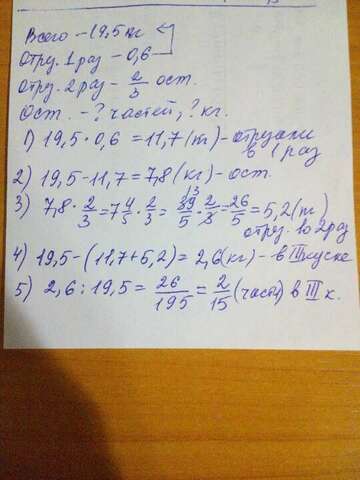 Всего - 19,5 кг
Отру. 1 раз - 0,6
Отру. 2 раз - 2/3 ост.
Ост. - ? частей, ? кг.
1) 19,5 · 0,6 = 11,7 (т) - отрузили
в 1 раз
2) 19,5 - 11,7 = 7,8 (кг) - ост.
3) 7,8 · 2/3 = 7 4/5 · 2/3 = 39/5 · 2/3 = 26/5 = 5,2 (т)
13
отру. во 2 раз
4) 19,5 - (11,7 + 5,2) = 2,6 (кг) - в III куске
5) 2,6 : 19,5 = 26/195 = 2/15 (части) в III к.